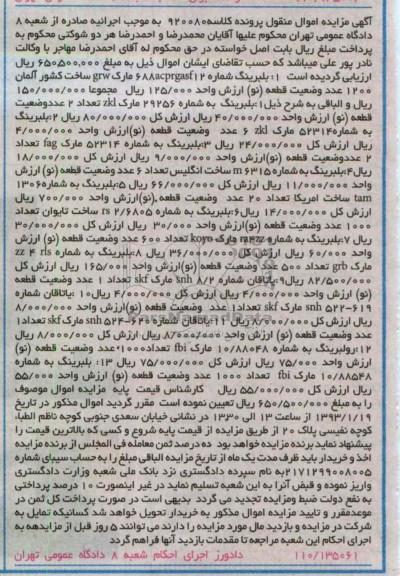 آگهی مزایده اموال منقول پرونده کلاسه۹۲۰۰۸۰ به موجب اجرائیه صادره از شعبه ۸
دادگاه عمومی تهران محکوم علیها آقایان محمدرضا و احمدرضا هر دو شوکتی محکوم به
پرداخت مبلغ ریال بابت اصل خواسته در حق محکوم له آقای احمدرضا مهاجر با وکالت
نادر پور علی میباشد که حسب تقاضای ایشان اموال ذیل به مبلغ ۶۵۰,۵۰۰,۰۰۰ ریالی
ارزیابی گردیده است ۱: بلبرینگ شماره ۶۸۸acprgasf۱۲ مارک grw ساخت کشور آلمان
۱۲۰۰ عدد وضعیت قطعه (نو) ارزش واحد ۱۲۵/۰۰۰ ریال مجموعا ۱۵۰/۰۰۰/۰۰۰
ریال و الباقی به شرح ذیل۱:بلبرینگ به شماره ۲۹۲۵۶ مارک zkl تعداد ۲ عددوضعیت
قطعه (نو) ارزش واحد ۴۰/۰۰۰/۰۰۰ ریال ارزش کل ۸۰/۰۰۰/۰۰۰ ریال ۲:بلبرینگ
به شماره۵۲۳۱۴ مارک zkl ۶ عدد وضعیت قطعه (نو)ارزش واحد ۴/۰۰۰/۰۰۰
ریال ارزش کل ۲۴/۰۰۰/۰۰۰ ریال ۳:بلبرینگ به شماره ۵۲۳۱۴ مارک fag تعداد
۲ عددوضعیت قطعه (نو)ارزش واحد ۹/۰۰۰/۰۰۰ ریال ارزش کل ۱۸/۰۰۰/۰۰۰
ریال۴:بلبرینگ به شماره ۶۳۱۵ m ساخت انگلیس تعداد ۶ عدد وضعیت قطعه (نو)ارزش
واحد ۱۱/۰۰۰/۰۰۰ ریال ارزش کل ۶۶/۰۰۰/۰۰۰ ریال ۵:بلبرینگ به شماره۱۳۰۶۵
tam ساخت امریکا تعداد ۲۰ عدد وضعیت قطعه (نو)ارزش واحد ۷۰۰/۰۰۰ ریال
ارزش کل ۱۴/۰۰۰/۰۰۰ ریال۶:بلبرینگ به شماره ۲/۶۸۰۵ rs ساخت تایوان تعداد
۱۰۰۰ عدد وضعیت قطعه (نو)ارزش واحد ۳۰/۰۰۰ ریال ارزش کل ۳۰/۰۰۰/۰۰۰
ریال ۷:بلبرینگ به شماره مارک koyo تعداد ۶۰۰ عدد وضعیت قطعه (نو) ارزش
واحد ۶۰/۰۰۰ ریال ارزش کل ۳۶/۰۰۰/۰۰۰ ریال ۸:بلبرینگ به شماره zz ۴ rls
مارک grb تعداد ۵۰۰ عدد وضعیت قطعه (نو) ارزش واحد ۱۶۵/۰۰۰ ریال ارزش کل
۸۲/۵۰۰/۰۰۰ ریال۹:یاتاقان شماره ۸/۲ snh مارک skf تعداد ۱ عدد وضعیت قطعه
(نو) ارزش واحد ۴/۰۰۰/۰۰۰ ریال ارزش کل ۴/۰۰۰/۰۰۰ ریال۱۰ :یاتاقان شماره
۵۲۲-۶۱۹ snh مارک skf تعداد۱ عدد وضعیت قطعه (نو)ارزش واحد ۸/۰۰۰/۰۰۰
ریال ارزش کل ۸/۰۰۰/۰۰۰ ریال ۱۱:یاتاقان شماره ۶۲۰-۵۲۴ snh مارک skf تعداد۱
عدد وضعیت قطعه (نو) ارزش واحد ۸/۰۰۰/۰۰۰ ریال ارزش کل ۸/۰۰۰/۰۰۰ ریال
۱۲:رولبرینگ به شماره ۱۰/۸۸۰۴۸ مارک fbi تعداد۱۰۰۰عدد وضعیت قطعه (نو)
ارزش واحد ۷۵/۰۰۰ ریال ارزش کل ۷۵/۰۰۰/۰۰۰ ریال ۱۳: بلبرینگ به شماره
۱۰/۸۸۵۴۸ مارک fbi تعداد ۱۰۰۰ عدد وضعیت قطعه (نو) ارزش واحد ۵۵/۰۰۰
ریال ارزش کل ۵۵/۰۰۰/۰۰۰ ریال کارشناس قیمت پایه مزایده اموال موصوف
را به مبلغ ۶۵۰/۵۰۰/۰۰۰ ریال تعیین نموده است مقرر گردید اموال مذکور در تاریخ
۱۳۹۳/۱/۱۹ از ساعت ۱۳ الی ۱۳:۳۰ در نشانی خیابان سعدی جنوبی کوچه ناظم الطبا،
کوچه نفیسی پلاک ۲۰ از طریق مزایده از قیمت پایه شروع و کسی که بالاترین قیمت را
پیشنهاد نماید برنده مزایده خواهد بود ده درصد ثمن معامله فی المجلس از برنده مزایده
اخذ و خریدار باید ظرف مدت یک ماه از تاریخ مزایده الباقی مبلغ را به حساب سیبای شماره
۲۱۷۱۲۹۹۰۰۸۰۰۵به نام سپرده دادگستری نزد بانک ملی شعبه وزارت دادگستری
واریز نموده و قبض آنرا به این شعبه تسلیم نماید در غیر اینصورت ۱۰ درصد پرداختی
به نفع دولت ضبط ومزایده تجدید می گردد بدیهی است در صورت پرداخت کل ثمن در
موعدمقرر و تایید مزایده اموال مذکور به خریدار تحویل خواهد شد کسانیکه تمایل به
شرکت در مزایده و بازدید مال مورد مزایده را دارند می توانند ۵ روز قبل از مزایدهه به
اجرای احکام این شعبه مراجعه تا مقدمات بازدید آنها فراهم گردد
۱۱۰/۱۳۵۰۶۱ دادورز اجرای احکام شعبه ۸ دادگاه عمومی تهران